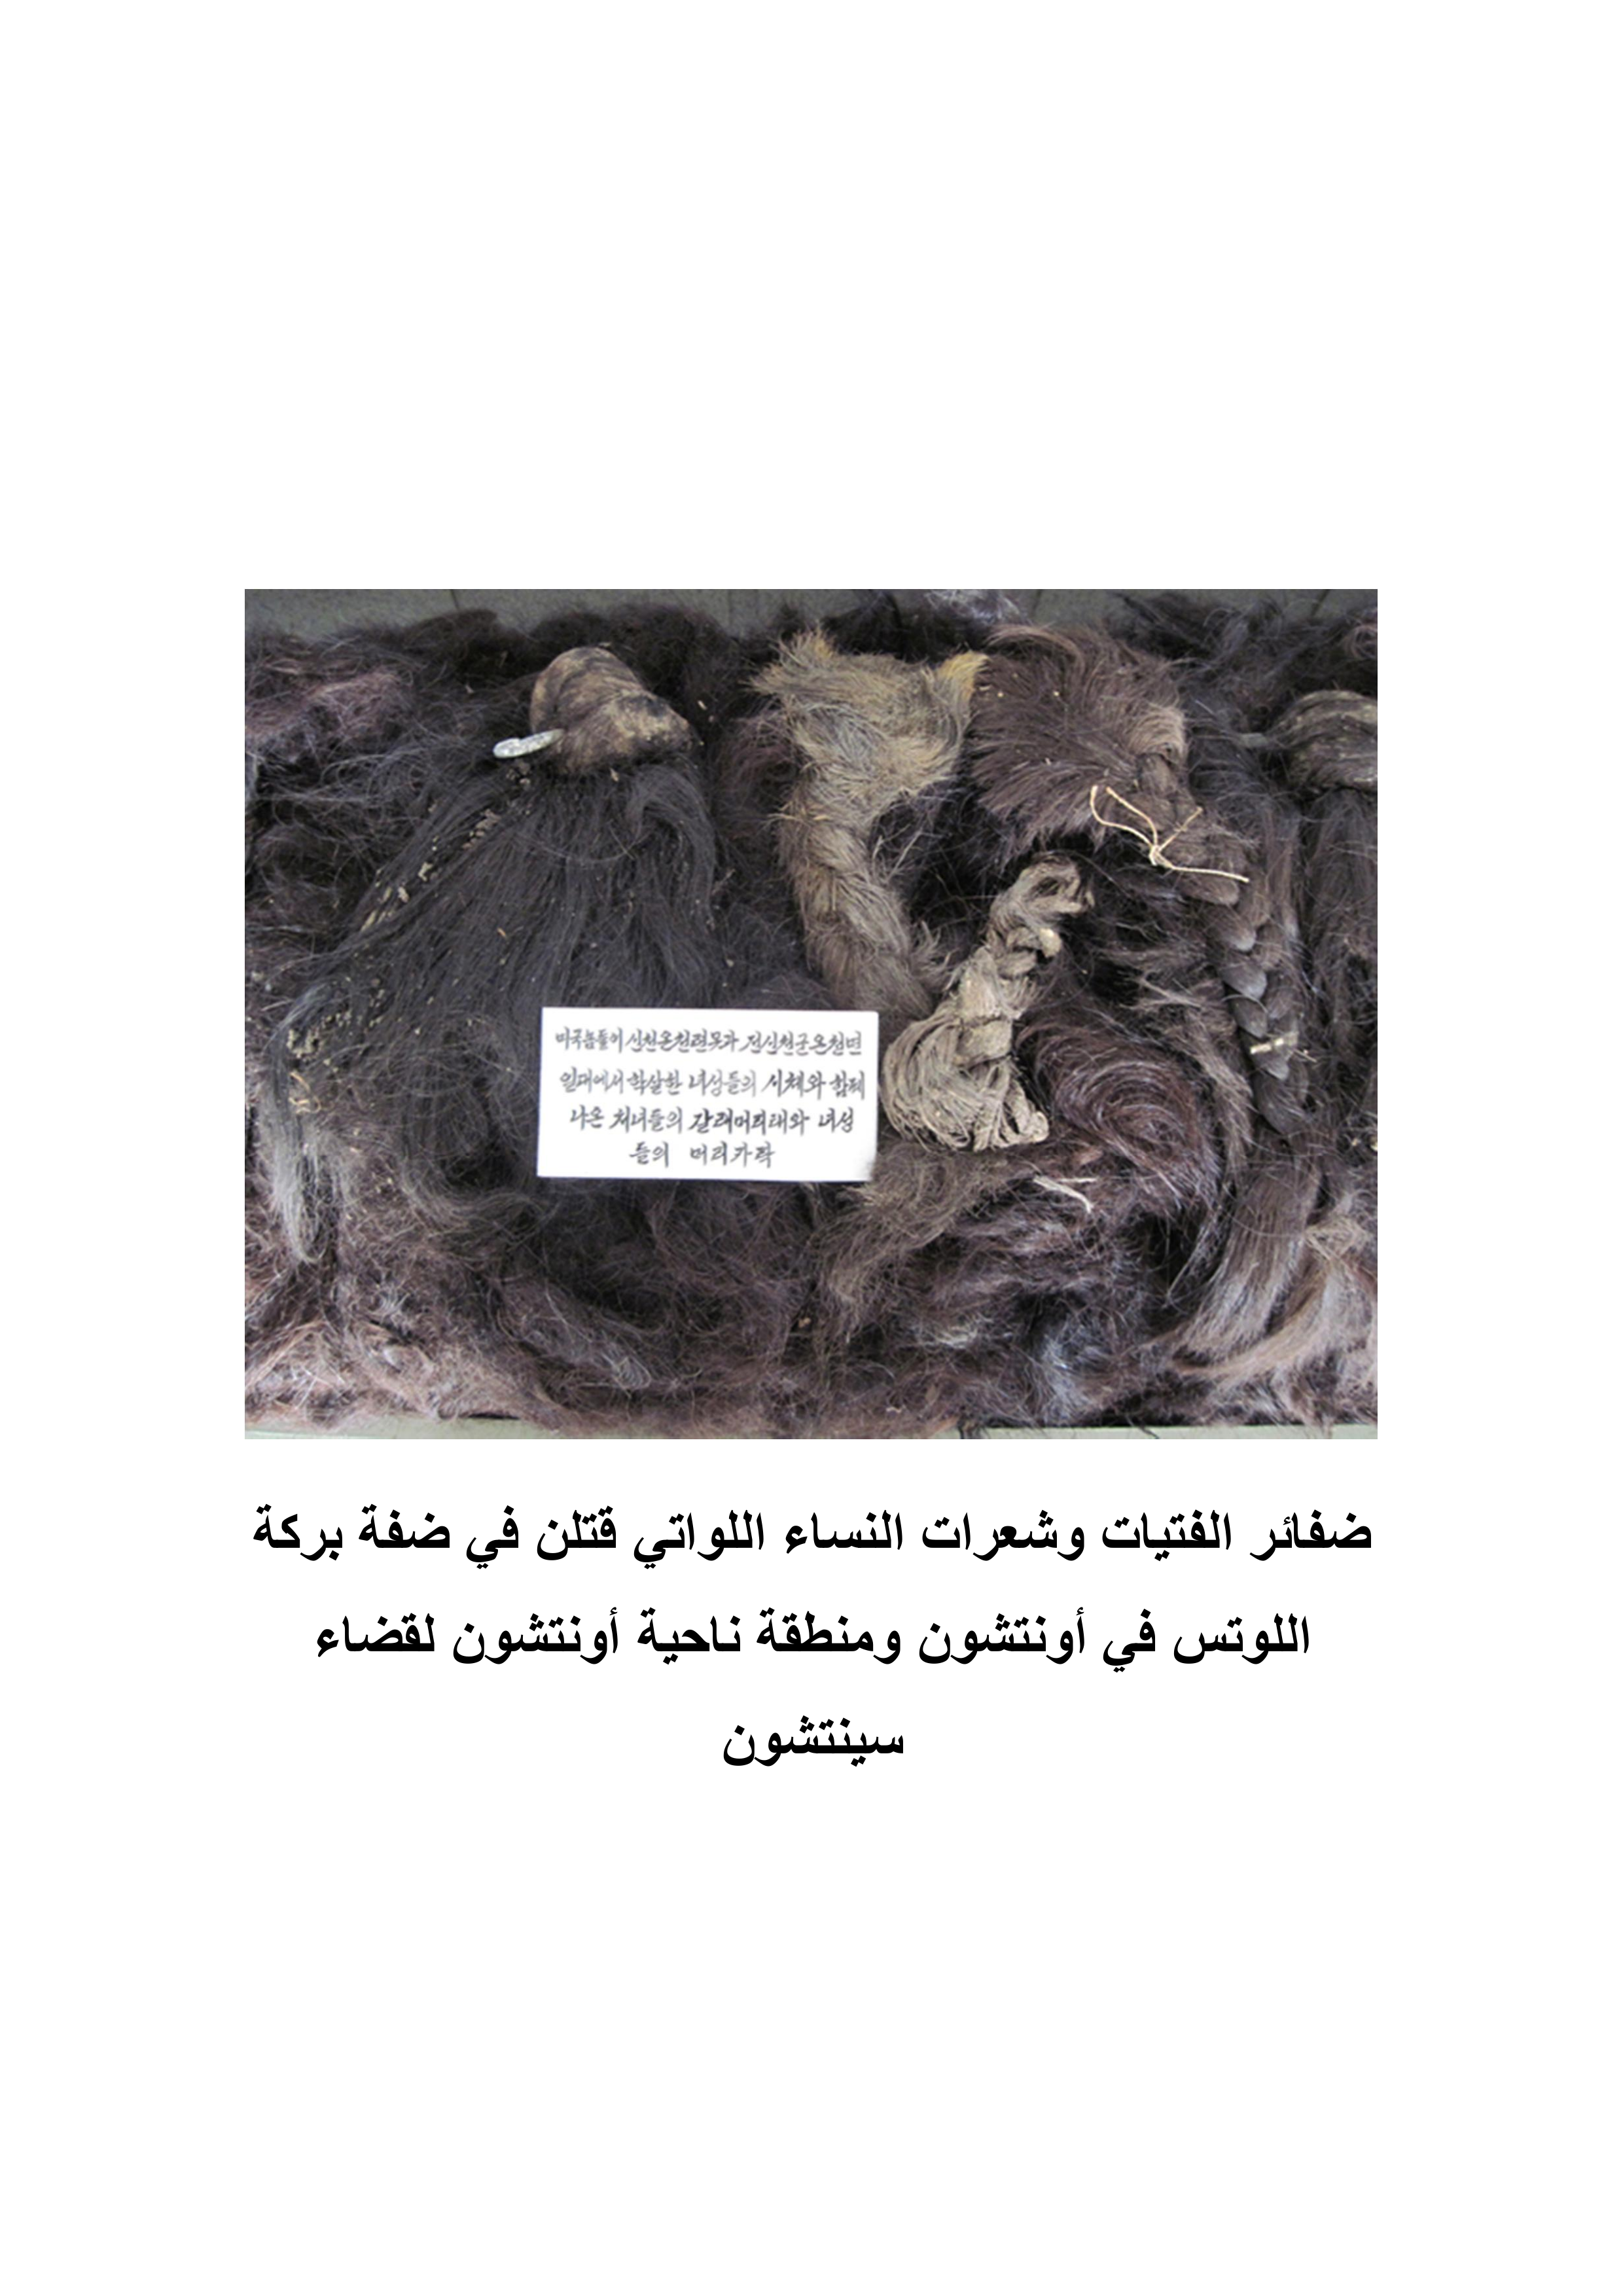 미국놈들이 신천온천련못과 전신천군온천면
일대에서 학살한 녀성들의 시체와 함께
나온 처녀들의 갈래머리태와 녀성
들의 머리카락
ضفائر الفتيات وشعرات النساء اللواتي قتلن في ضفة بركة
اللوتس في أونتشون ومنطقة ناحية أونتشون لقضاء
سينتشون